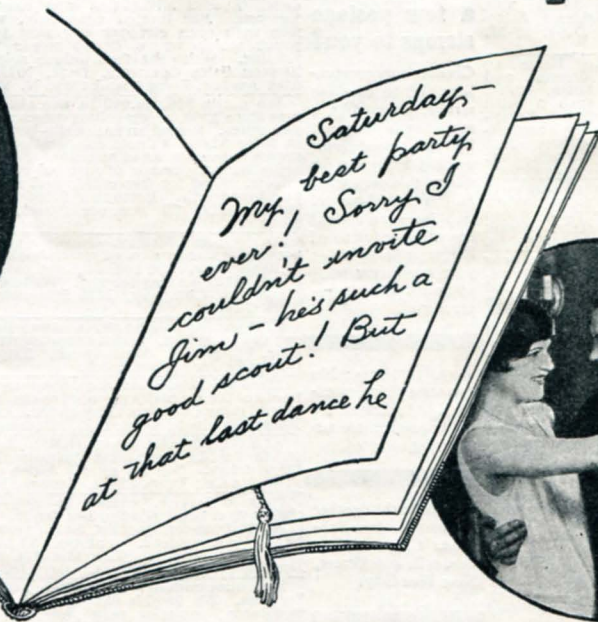 Saturday—
My best party
ever! Sorry I
couldn't invite
Jim – he's such a
good scout! But
at that last dance he